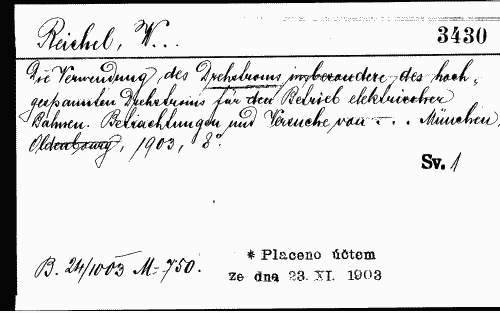 Reichel, W...
3430
Die Verwendung des Drehstroms insbesondere des hoch-
gespannten Drehstroms für den Betrieb elektrischer
Bahnen. Betrachtungen und Versuche von – . . . München,
Oldenbourg, 1903, 8°.
Sv. 1
B. 24/1003 M = 7·50.
* Placeno účtem
ze dna 23. XI. 1903